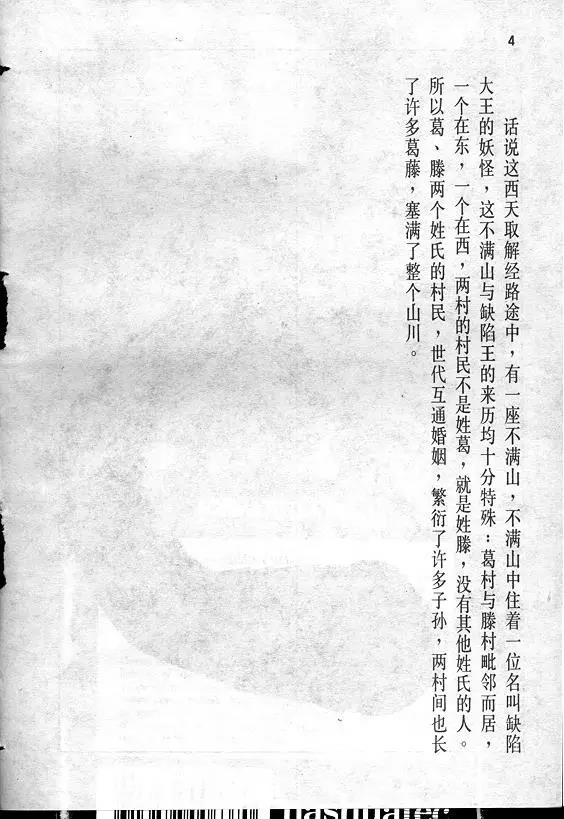 4
话说这西天取解经路途中，有一座不满山，不满山中住着一位名叫缺陷
大王的妖怪，这不满山与缺陷王的来历均十分特殊：葛村与滕村毗邻而居，
一个在东，一个在西，两村的村民不是姓葛，就是姓滕，没有其他姓氏的人。
所以葛、滕两个姓氏的村民，世代互通婚姻，繁衍了许多子孙，两村间也长
了许多葛藤，塞满了整个山川。